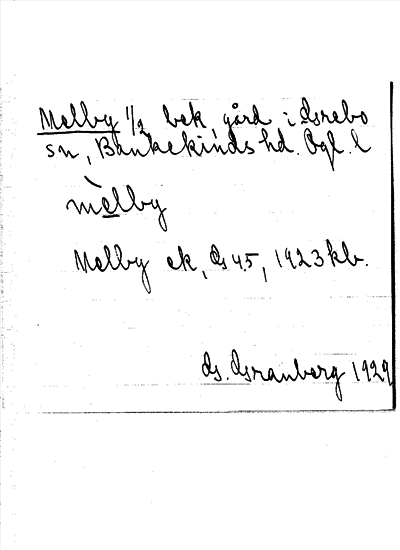 Melby 1/2 bek. gård i Grebo
sn, Bankekinds hd. Ögl. l
mèlby
Melby ek, G 45, 1923 kb.
G. Granberg 1929